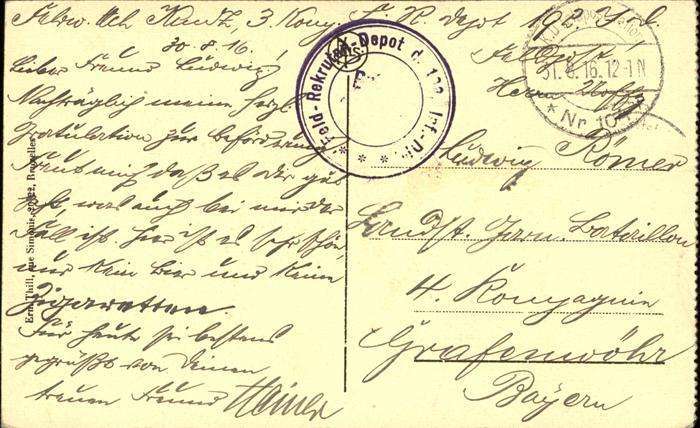 Kautz, 3. Komp. F. R. Depot 192. I. D.
30.8.16.
Lieber Freund Ludwig!
Nachträglich meine herzl.
Gratulation zur Beförderung.
Freut mich daß es dir gut
geht, was auch bei mir der
Fall ist. Hier ist es sehr schön,
nur kein Bier und keine
Zigaretten.
Für heute sei bestens
gegrüßt von Deinem
treuen Freund
Feld-Rekruten-Depot d. Inf.-Div.
31.8.16.12-1N
* Nr 10
Feldpost
Herrn
Ludwig Römer
Landst. Bataillon
4. Kompagnie
Grafenwöhr
Bayern
Ern. Thill, rue Simonis, Bruxelles